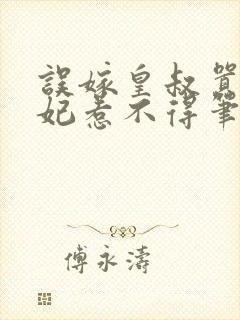 誤嫁皇叔
妃惹不得筆
傅永濤